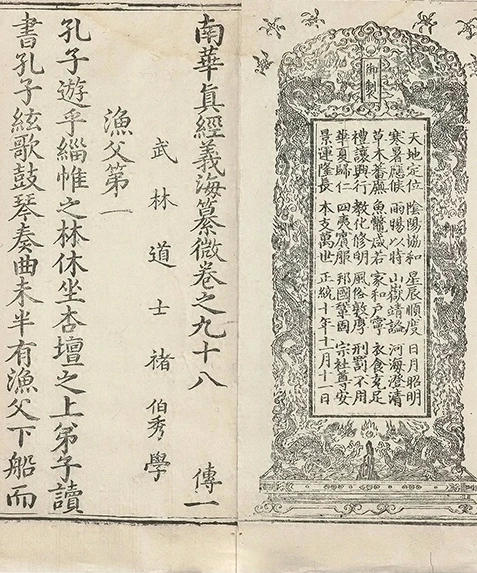 御製
天地定位 陰陽協和 星辰順度 日月昭明
寒暑應候 雨暘以時 山嶽靖謐 河海澄清
草木蕃廡 魚鱉咸若 家和戶寧 衣食充足
禮讓興行 教化修明 風俗敦厚 刑罰不用
華夏歸仁 四夷賓服 邦國鞏固 宗社尊安
景運隆長 本支萬世 正統十年十一月十一日
南華真經義海纂微卷之九十八 傳一
武林道士褚伯秀學
漁父第一
孔子遊乎緇帷之林休坐杏壇之上弟子讀
書孔子絃歌鼓琴奏曲未半有漁父下船而